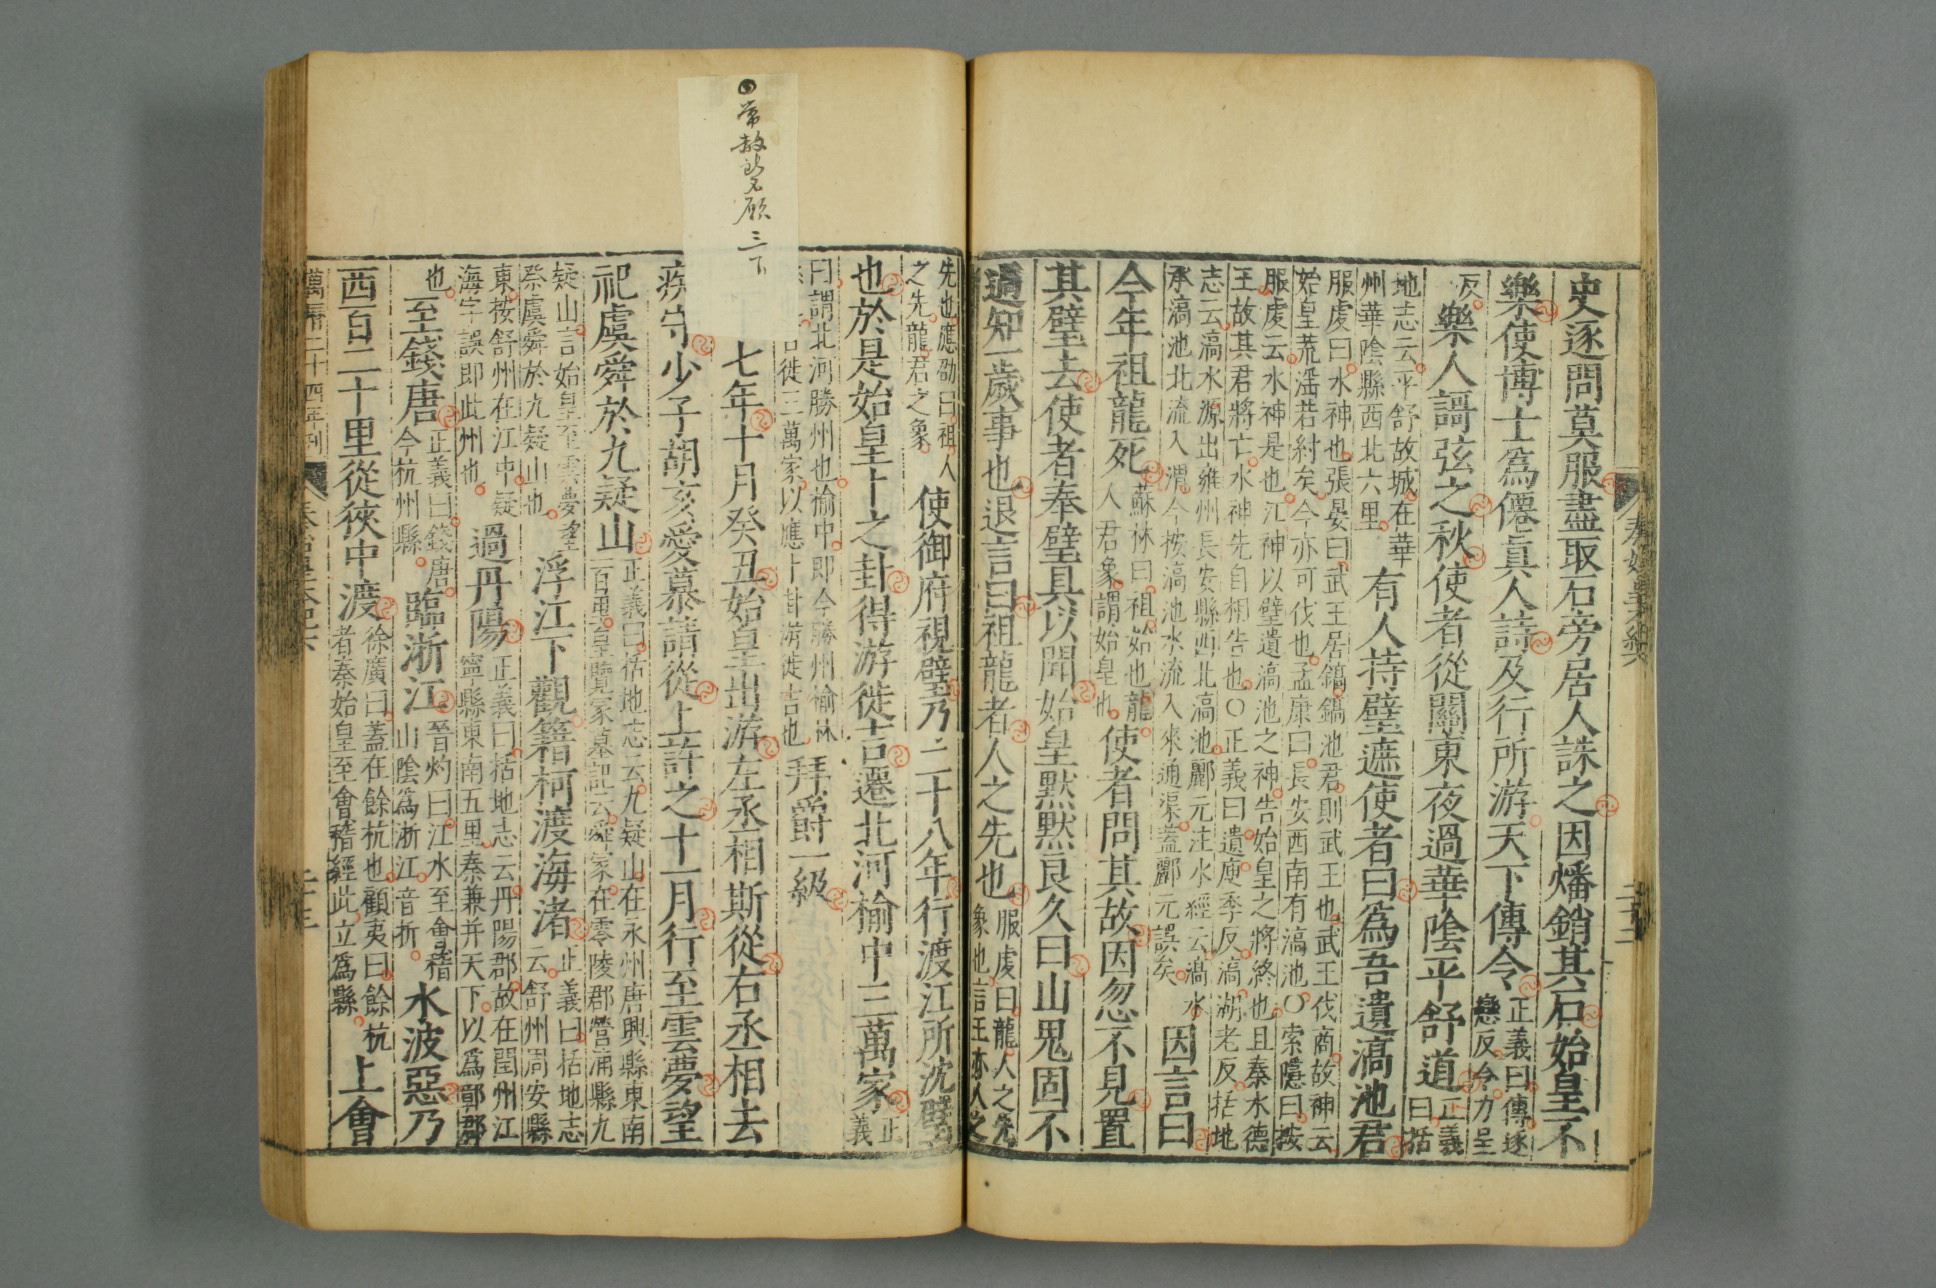 秦始皇本紀六
二十二
史逐問莫服盡取石旁居人誅之因燔銷其石始皇不
樂使博士為僊眞人詩及行所游天下傳令正義曰傳逐
戀反令力呈
反樂人謌弦之秋使者從關東夜過華陰平舒道正義
曰括
地志云平舒故城在華
州華陰縣西北六里有人持璧遮使者曰為吾遺滈池君
服虔曰水神也張晏曰武王居鎬鎬池君則武王也武王伐商故神云
始皇荒滛若紂矣今亦可伐也孟康曰長安西南有滈池○索隱曰按
服虔云水神是也江神以璧遺滈池之神告始皇之將終也且秦水德
王故其君將亡水神先自相告也○正義曰遺庾季反滈湖老反括地
志云滈水源出雍州長安縣西北滈池酈元注水經云滈水
承滈池北流入渭今按滈池水流入來通渠蓋酈元誤矣因言曰
今年祖龍死蘇林曰祖始也龍
人君象謂始皇也使者問其故因忽不見置
其璧去使者奉璧具以聞始皇默默良久曰山鬼固不
過知一歲事也退言曰祖龍者人之先也服虔曰龍人之先
象也言王亦人之
先也應劭曰祖人
之先龍君之象使御府視璧乃二十八年行渡江所沈璧
也於是始皇卜之卦得游徙吉遷北河榆中三萬家正
義
曰謂北河勝州也榆中即今勝州榆林
徙三萬家以應卜卦游徙吉也拜爵一級
常教 顧三下
七年十月癸丑始皇出游左丞相斯從右丞相去
疾守少子胡亥愛慕請從上許之十一月行至雲夢望
祀虞舜於九疑山正義曰括地志云九疑山在永州唐興縣東南
一百里皇覽冢墓記云舜冢在零陵郡營浦縣九
疑山言始皇至雲夢望
祭虞舜於九疑山也浮江下觀籍柯渡海渚正義曰括地志
云舒州周安縣
東按舒州在江中疑
海字誤即此州也過丹陽正義曰括地志云丹陽郡故在閏州江
寧縣東南五里秦兼并天下以為鄣郡
也至錢唐正義曰錢唐
今杭州縣臨浙江晉灼曰江水至會稽
山陰為浙江音折水波惡乃
西百二十里從狹中渡徐廣曰蓋在餘杭也顧夷曰餘杭
者秦始皇至會稽經此立為縣上會
萬曆二十四年刊
秦始皇本紀六
二十三